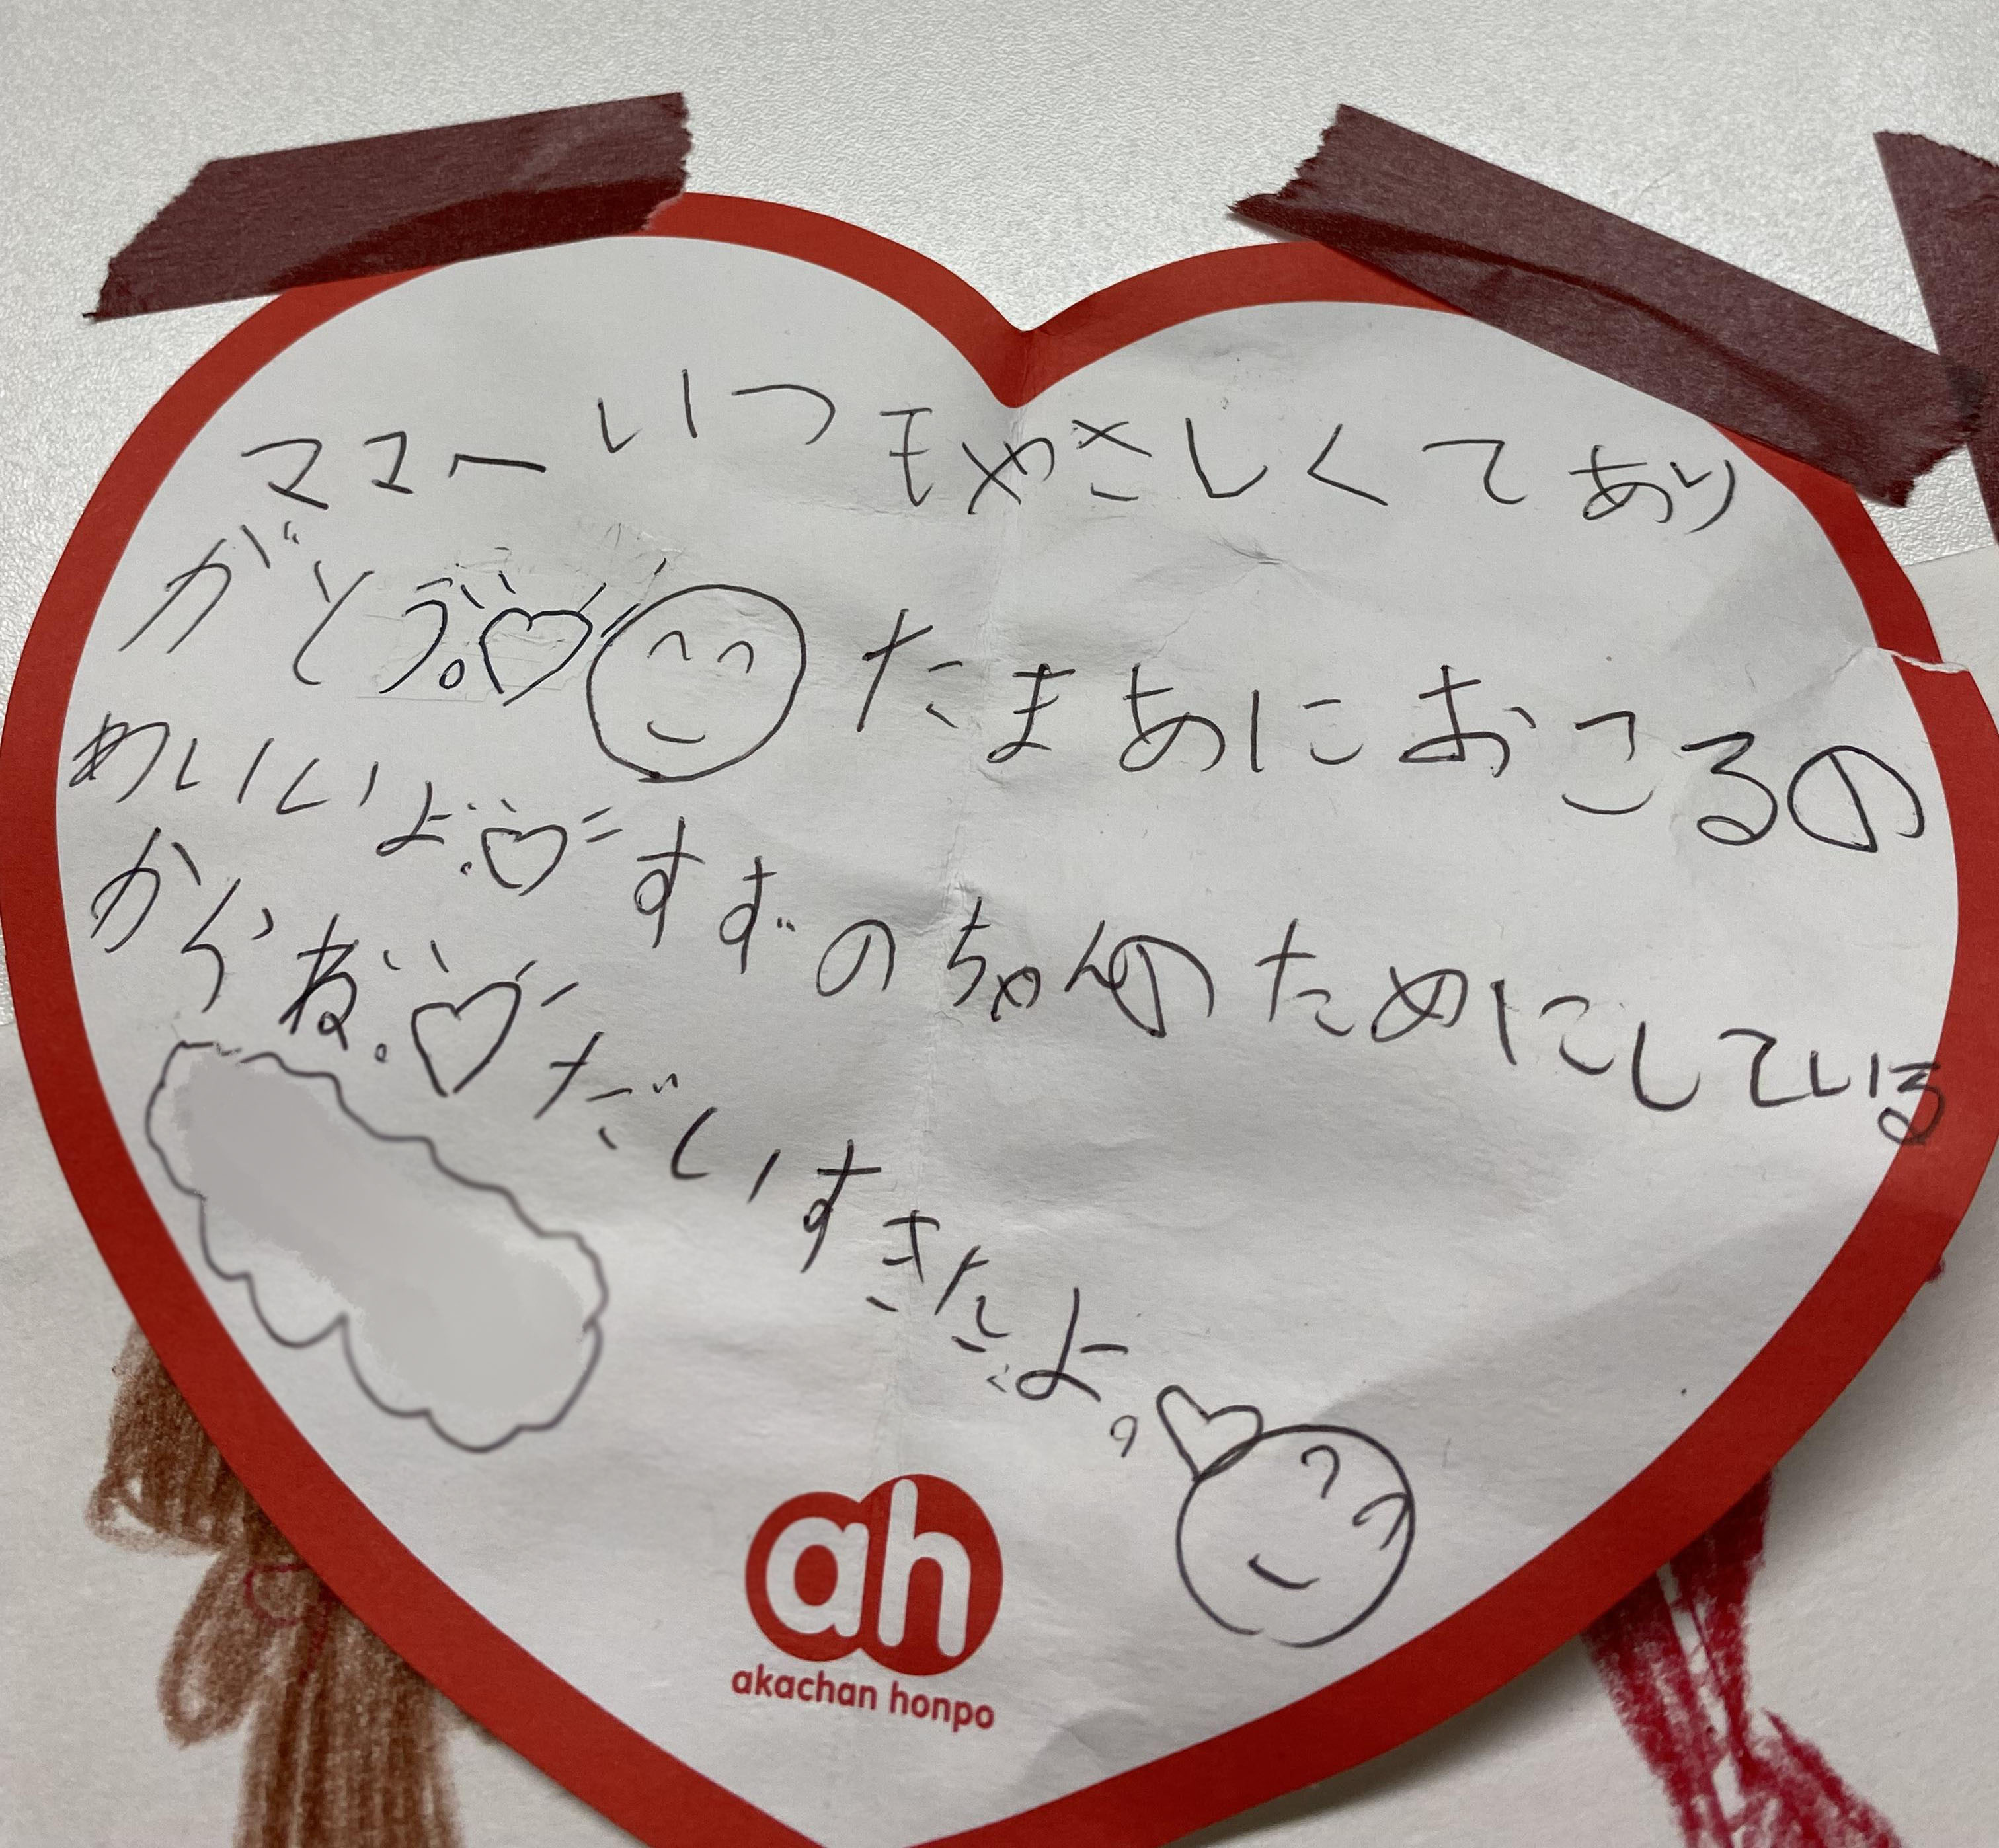 ママーいつもやさしくてあり
がとう。♡たまあにおこるの
めいいよ.♡すずのちゃんのためにしている
からね。♡だいすきだよ。♡
ah
akachan honpo